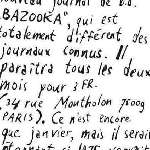 nouveau journal de b.d.
"BAZOOKA", qui est
totalement différent des
journaux connus. Il
paraîtra tous les deux
mois pour 3 FR.
(34 rue Montholon 75009
PARIS). Ce n'est encore
que janvier, mais il serait